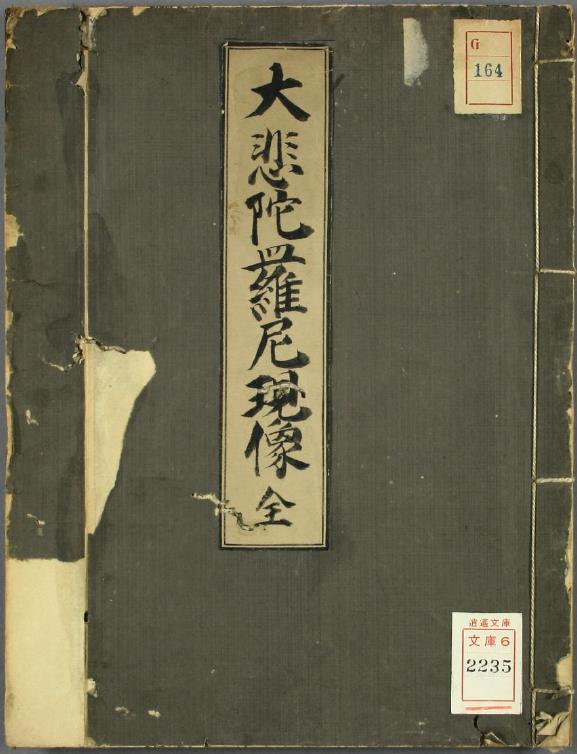 大悲陀羅尼現像 全
G
164
逍遥文庫
文庫6
2235